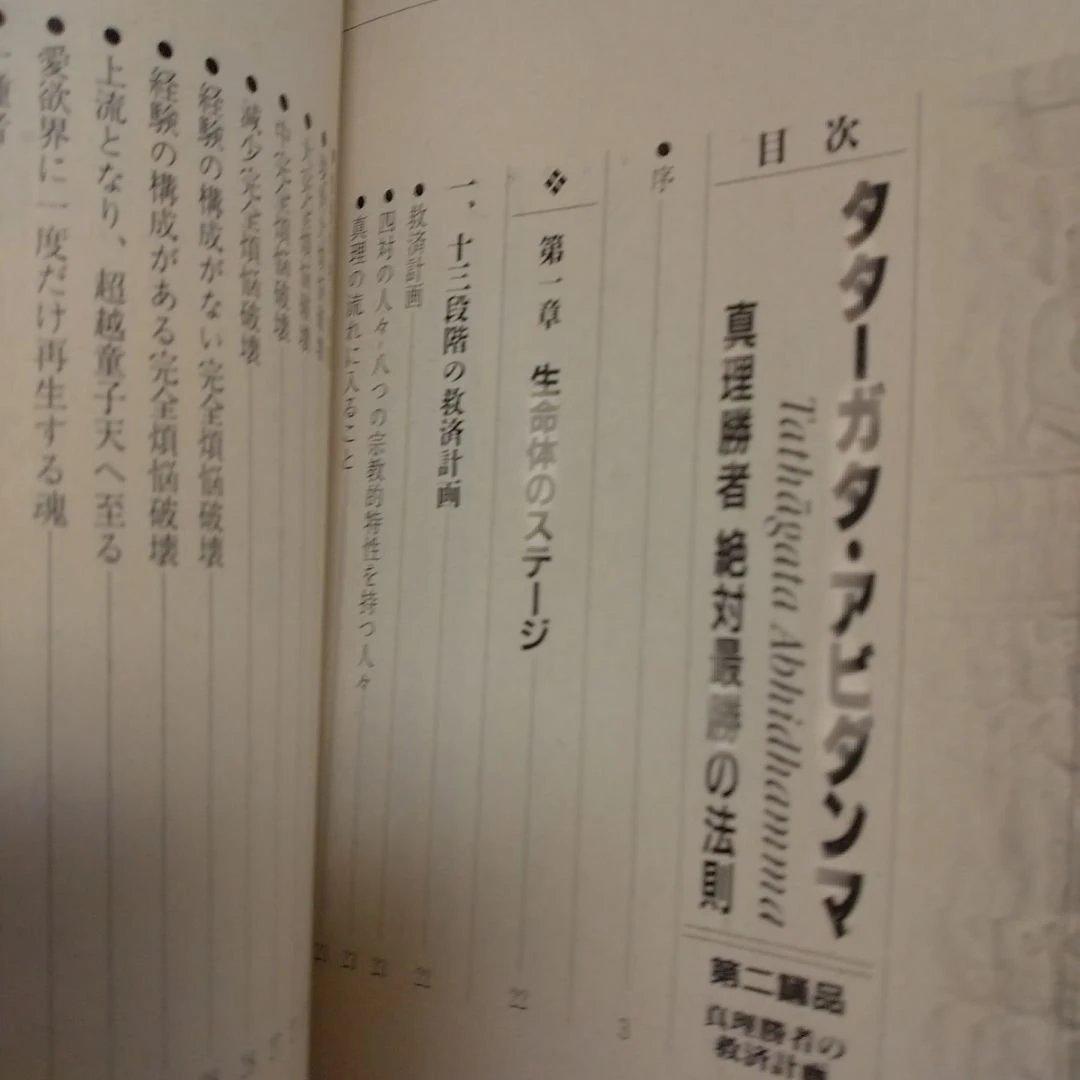 タターガタ・アビダンマ
Tathāgata Abhidhamma
真理勝者 絶対最勝の法則
第二誦品
真理勝者の
救済計画
目次
●序 3
❖第一章 生命体のステージ 22
一、十三段階の救済計画 22
●救済計画 23
●四対の人々・八つの宗教的特性を持つ人々 23
●真理の流れに入ること 23
●中完全煩悩破壊
●減少完全煩悩破壊
●経験の構成がない完全煩悩破壊
●経験の構成がある完全煩悩破壊
●上流となり、超越童子天へ至る
●愛欲界に一度だけ再生する魂